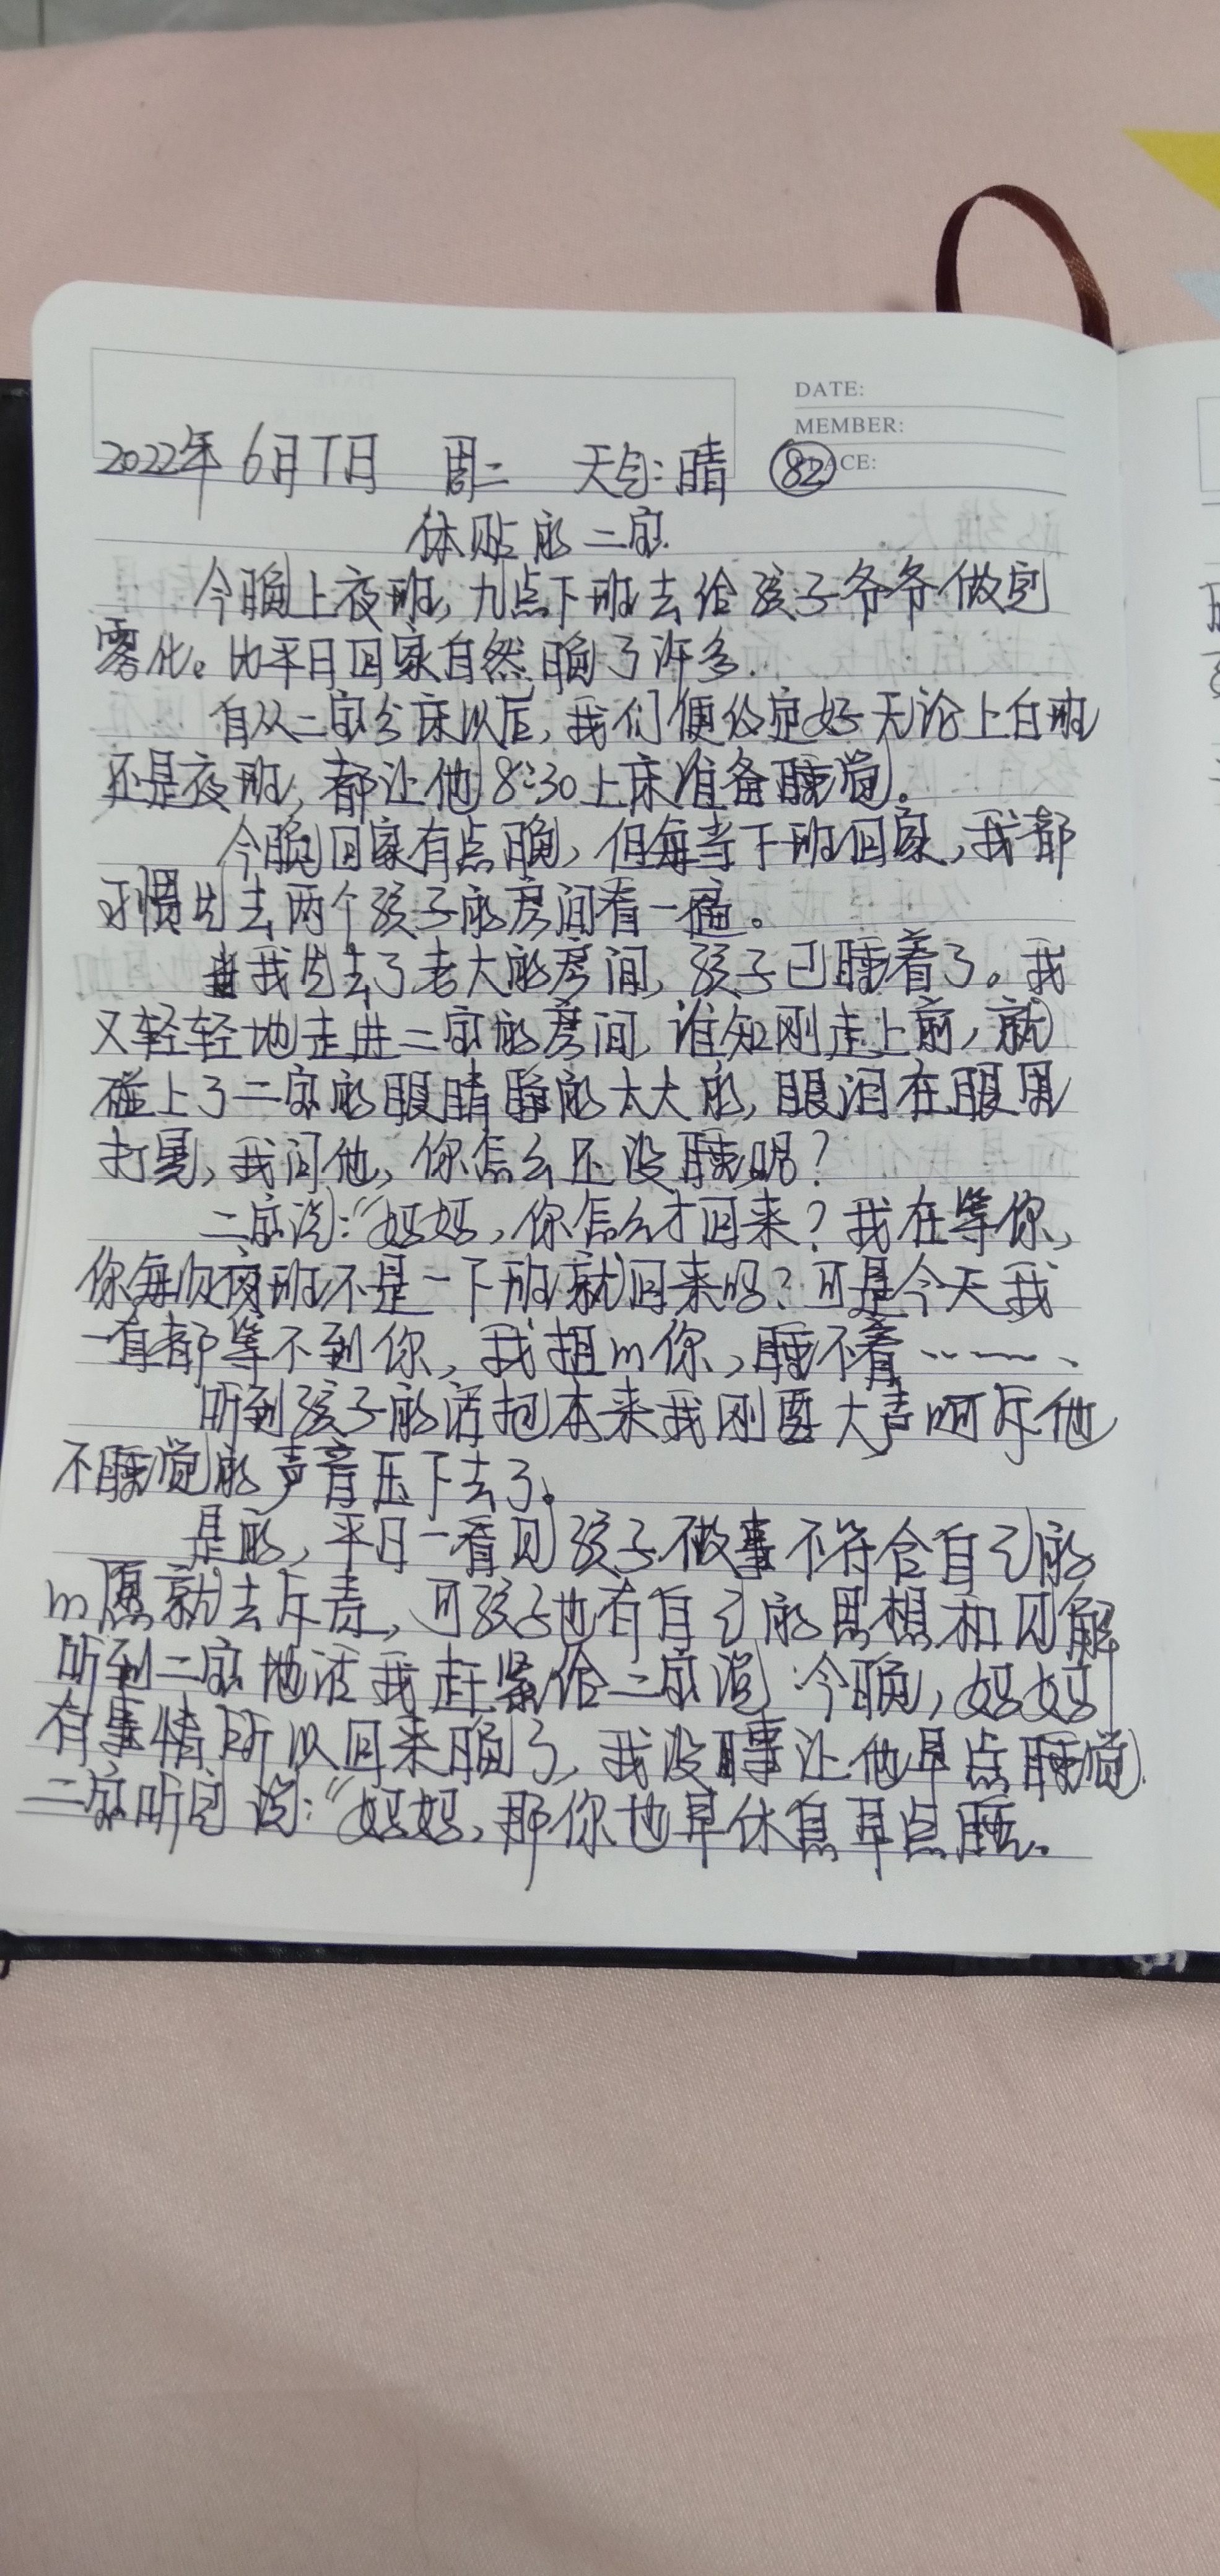 DATE:
MEMBER:
2022年6月7日 周二 天气:晴 82 PLACE:
体贴的二宝
今晚上夜班,九点下班去给孩子爷爷做完
雾化。比平日回家自然晚了许多.
自从二宝分床以后,我们便约定好无论上白班
还是夜班,都让他8:30上床准备睡觉。
今晚回家有点晚,但每当下班回家,我都
习惯先去两个孩子的房间看一遍。
当我先去了老大的房间,孩子已睡着了。我
又轻轻地走进二宝的房间,谁知刚走上前,就
碰上了二宝的眼睛睁的大大的,眼泪在眼里
打晃,我问他,你怎么还没睡呢?
二宝说:“妈妈,你怎么才回来?我在等你,
你每次夜班不是一下班就回来吗?可是今天我
一直都等不到你,我担心你,睡不着……
听到孩子的话把本来我刚要大声呵斥他
不睡觉的声音压下去了。
是的,平日一看见孩子做事不符合自己的
心愿就去斥责,可孩子也有自己的思想和见解
听到二宝地话我赶紧给二宝说 今晚,妈妈
有事情所以回来晚了,我没事让他早点睡觉.
二宝听完说:“妈妈,那你也早休息早点睡。